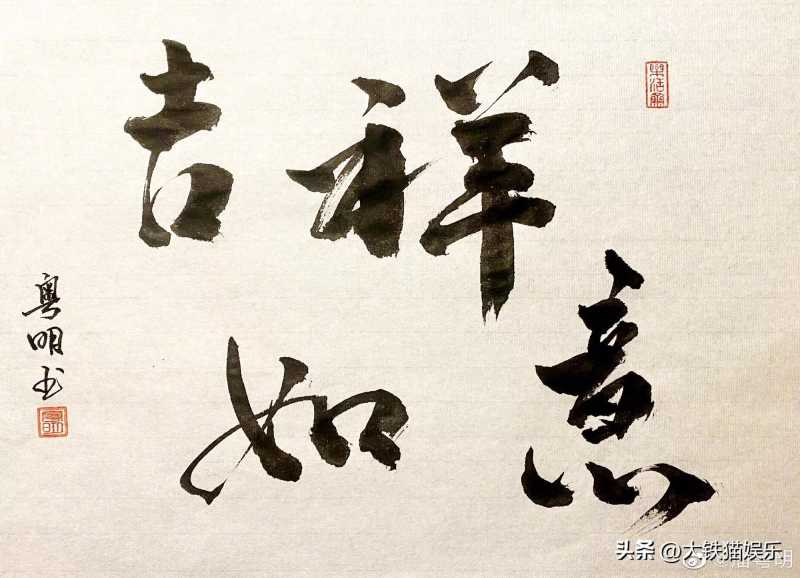 吉祥
如意
粤明书
头条 @大铁猫娱乐